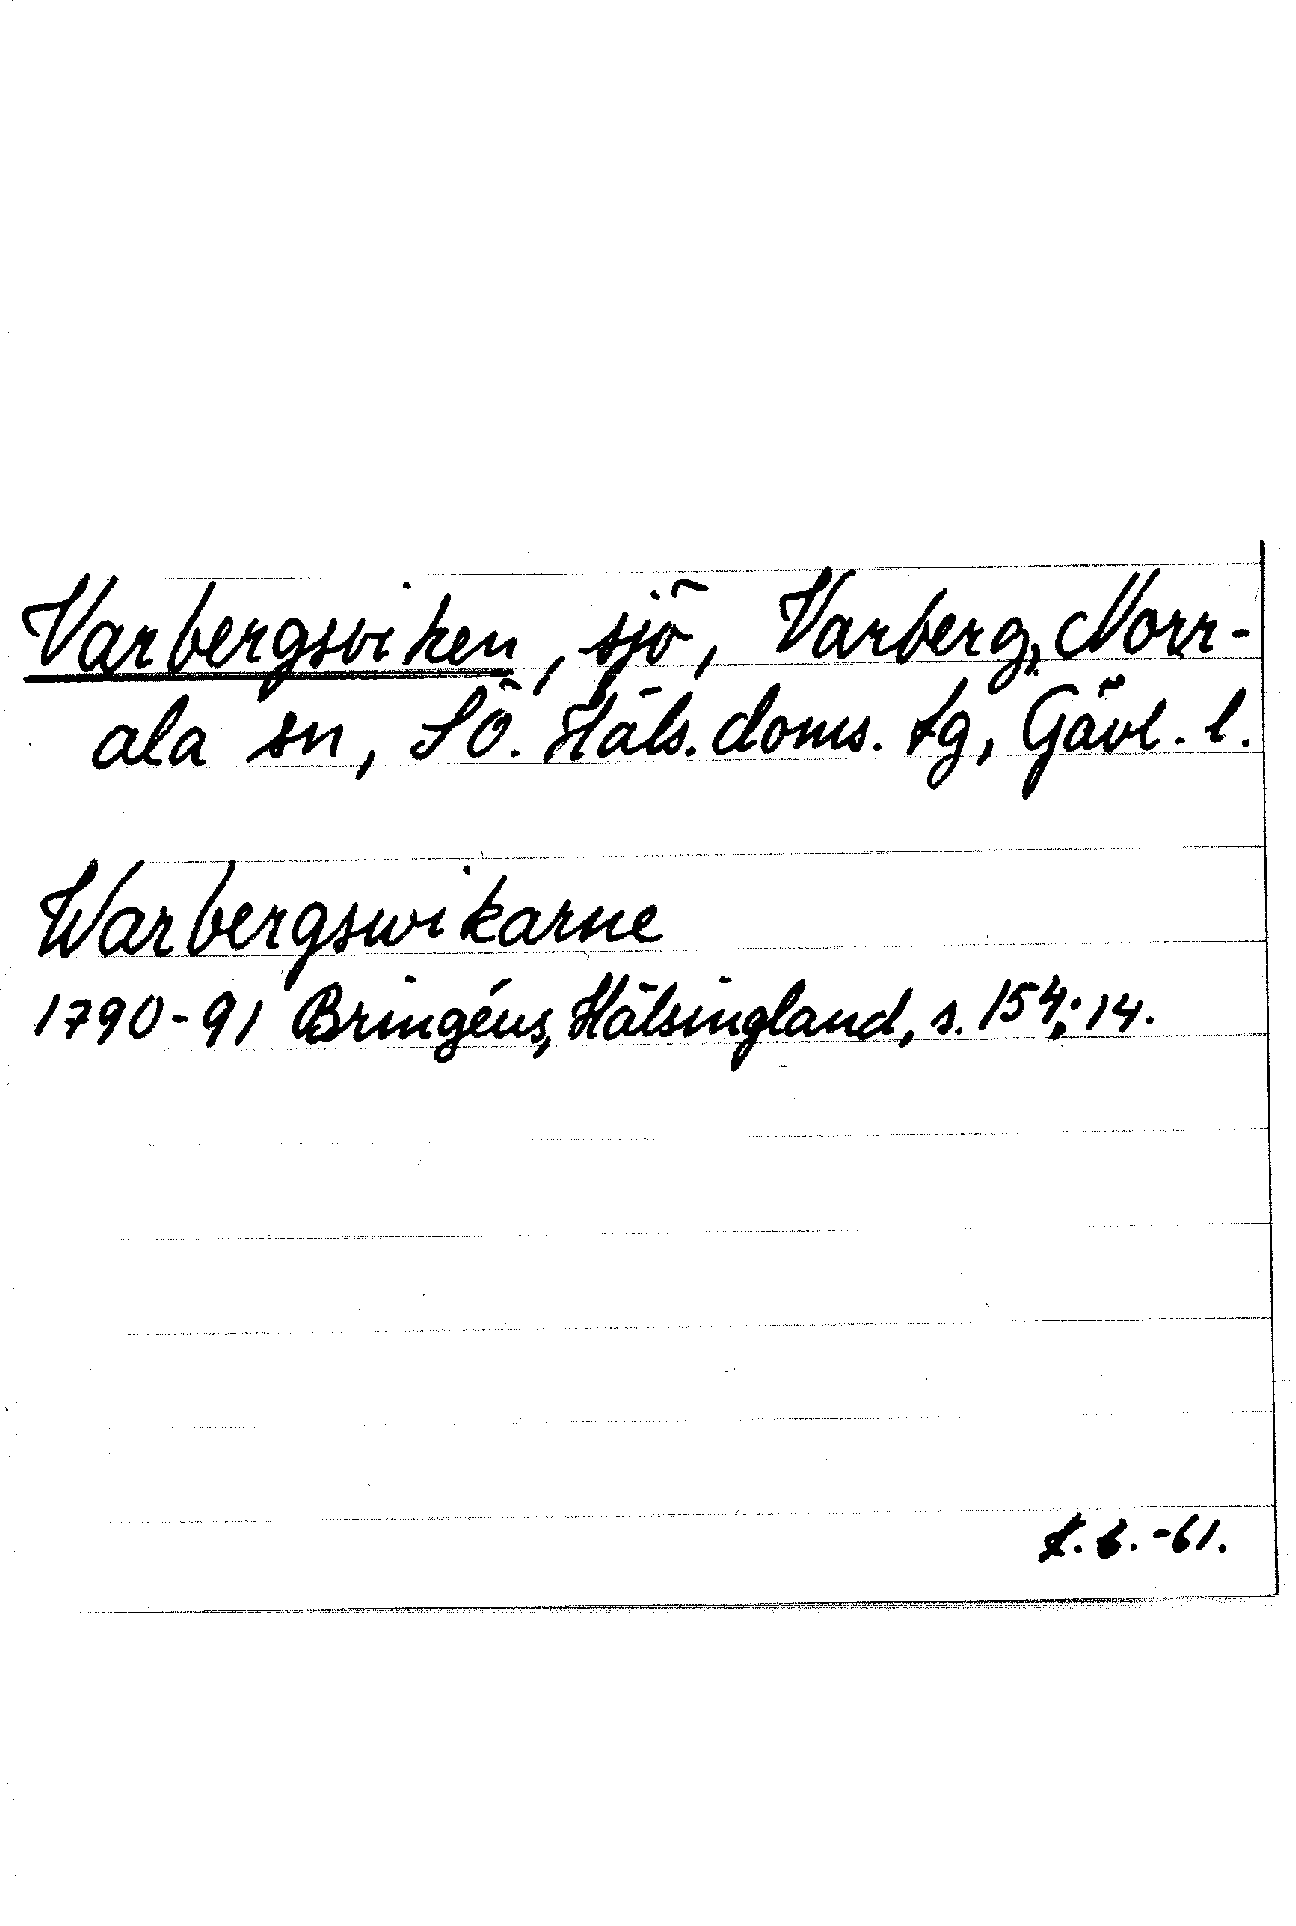 Varbergsviken, sjö, Varberg, Norr-
ala sn, SÖ. Häls. doms. tg, Gävl. l.
Warbergswikarne
1790-91 Bringéus, Hälsingland, s. 154; 14.
-61.